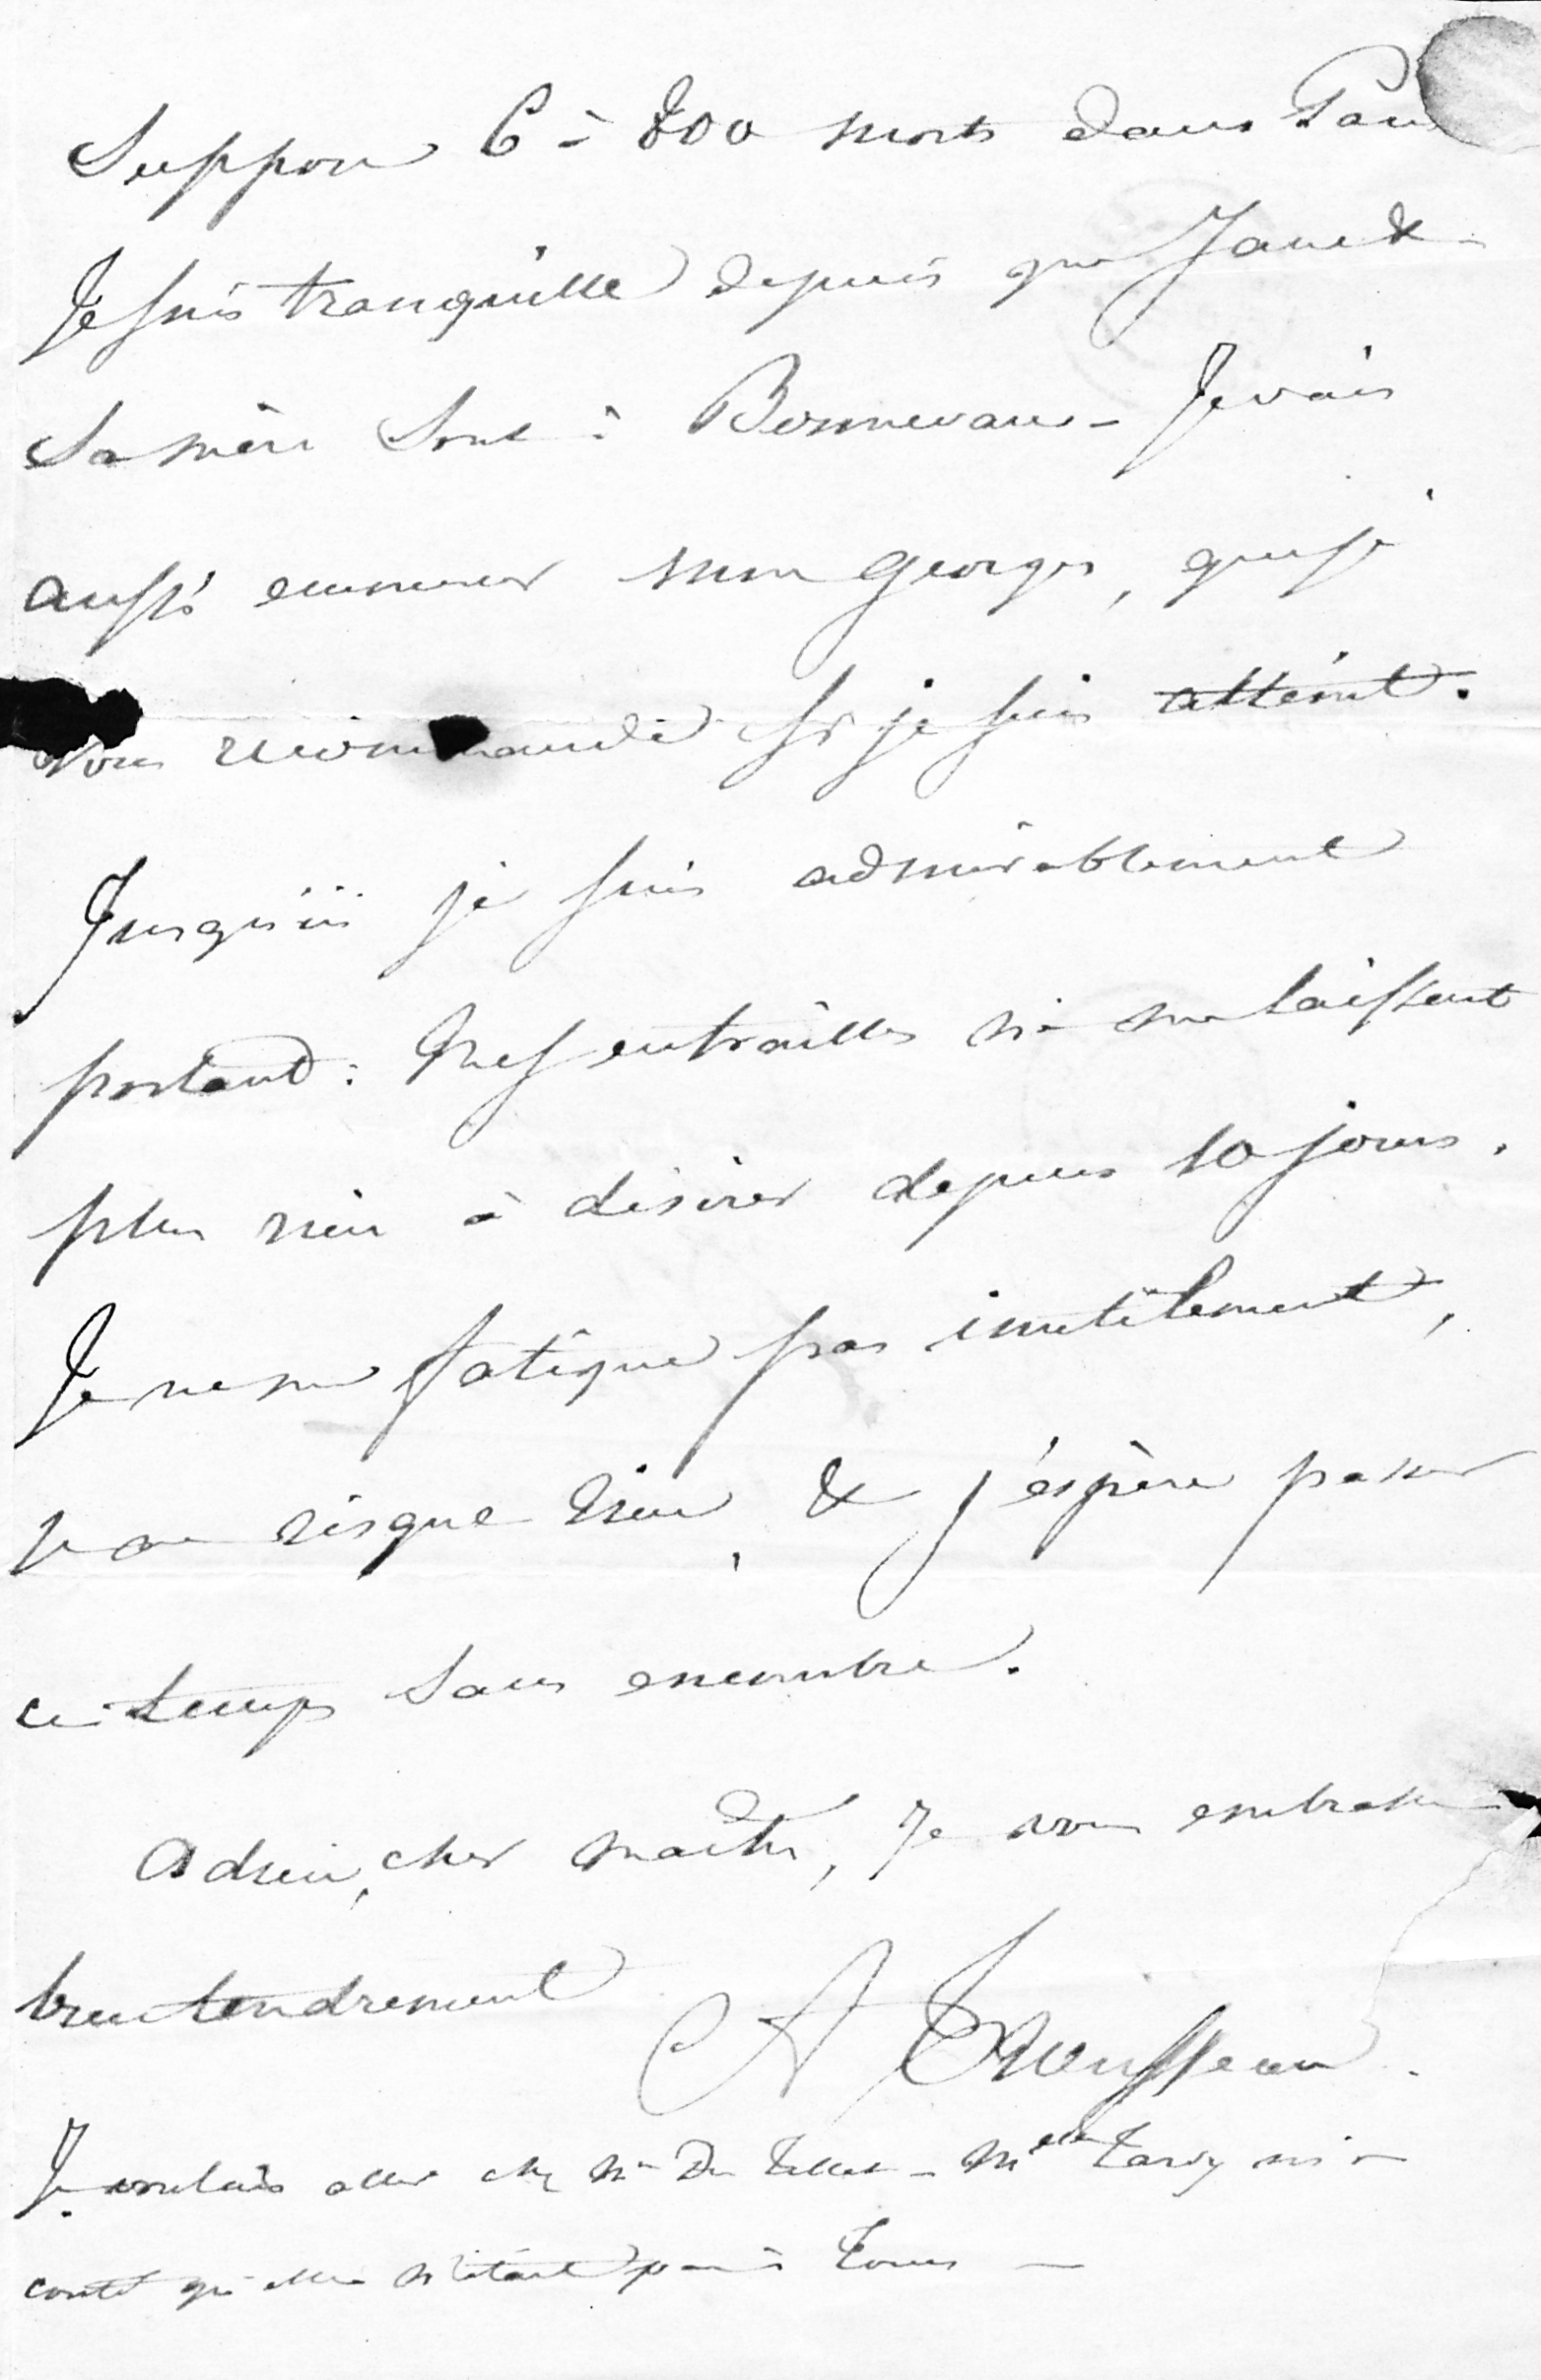 Suppose 6 à 800 morts dans Paris
Je suis tranquille depuis que Jane &
Sa mère Sont à Bonnevaux - Je vais
aussi emmener mon Georges, que je
vous recommande si je suis atteint.
Jusqu'ici je suis admirablement
portant : Mes entrailles ne me laissent
plus rien à désirer depuis 10 jours.
Je ne me fatigue pas inutilement,
ne risque rien, & j'espère passer
ce temps sans encombre.
Adieu, cher maître, Je vous embrasse
bien tendrement
A Trousseau.
Je voulais aller chez Me Du - Melle m'a
conté qu'elle n'était pas à Tours -